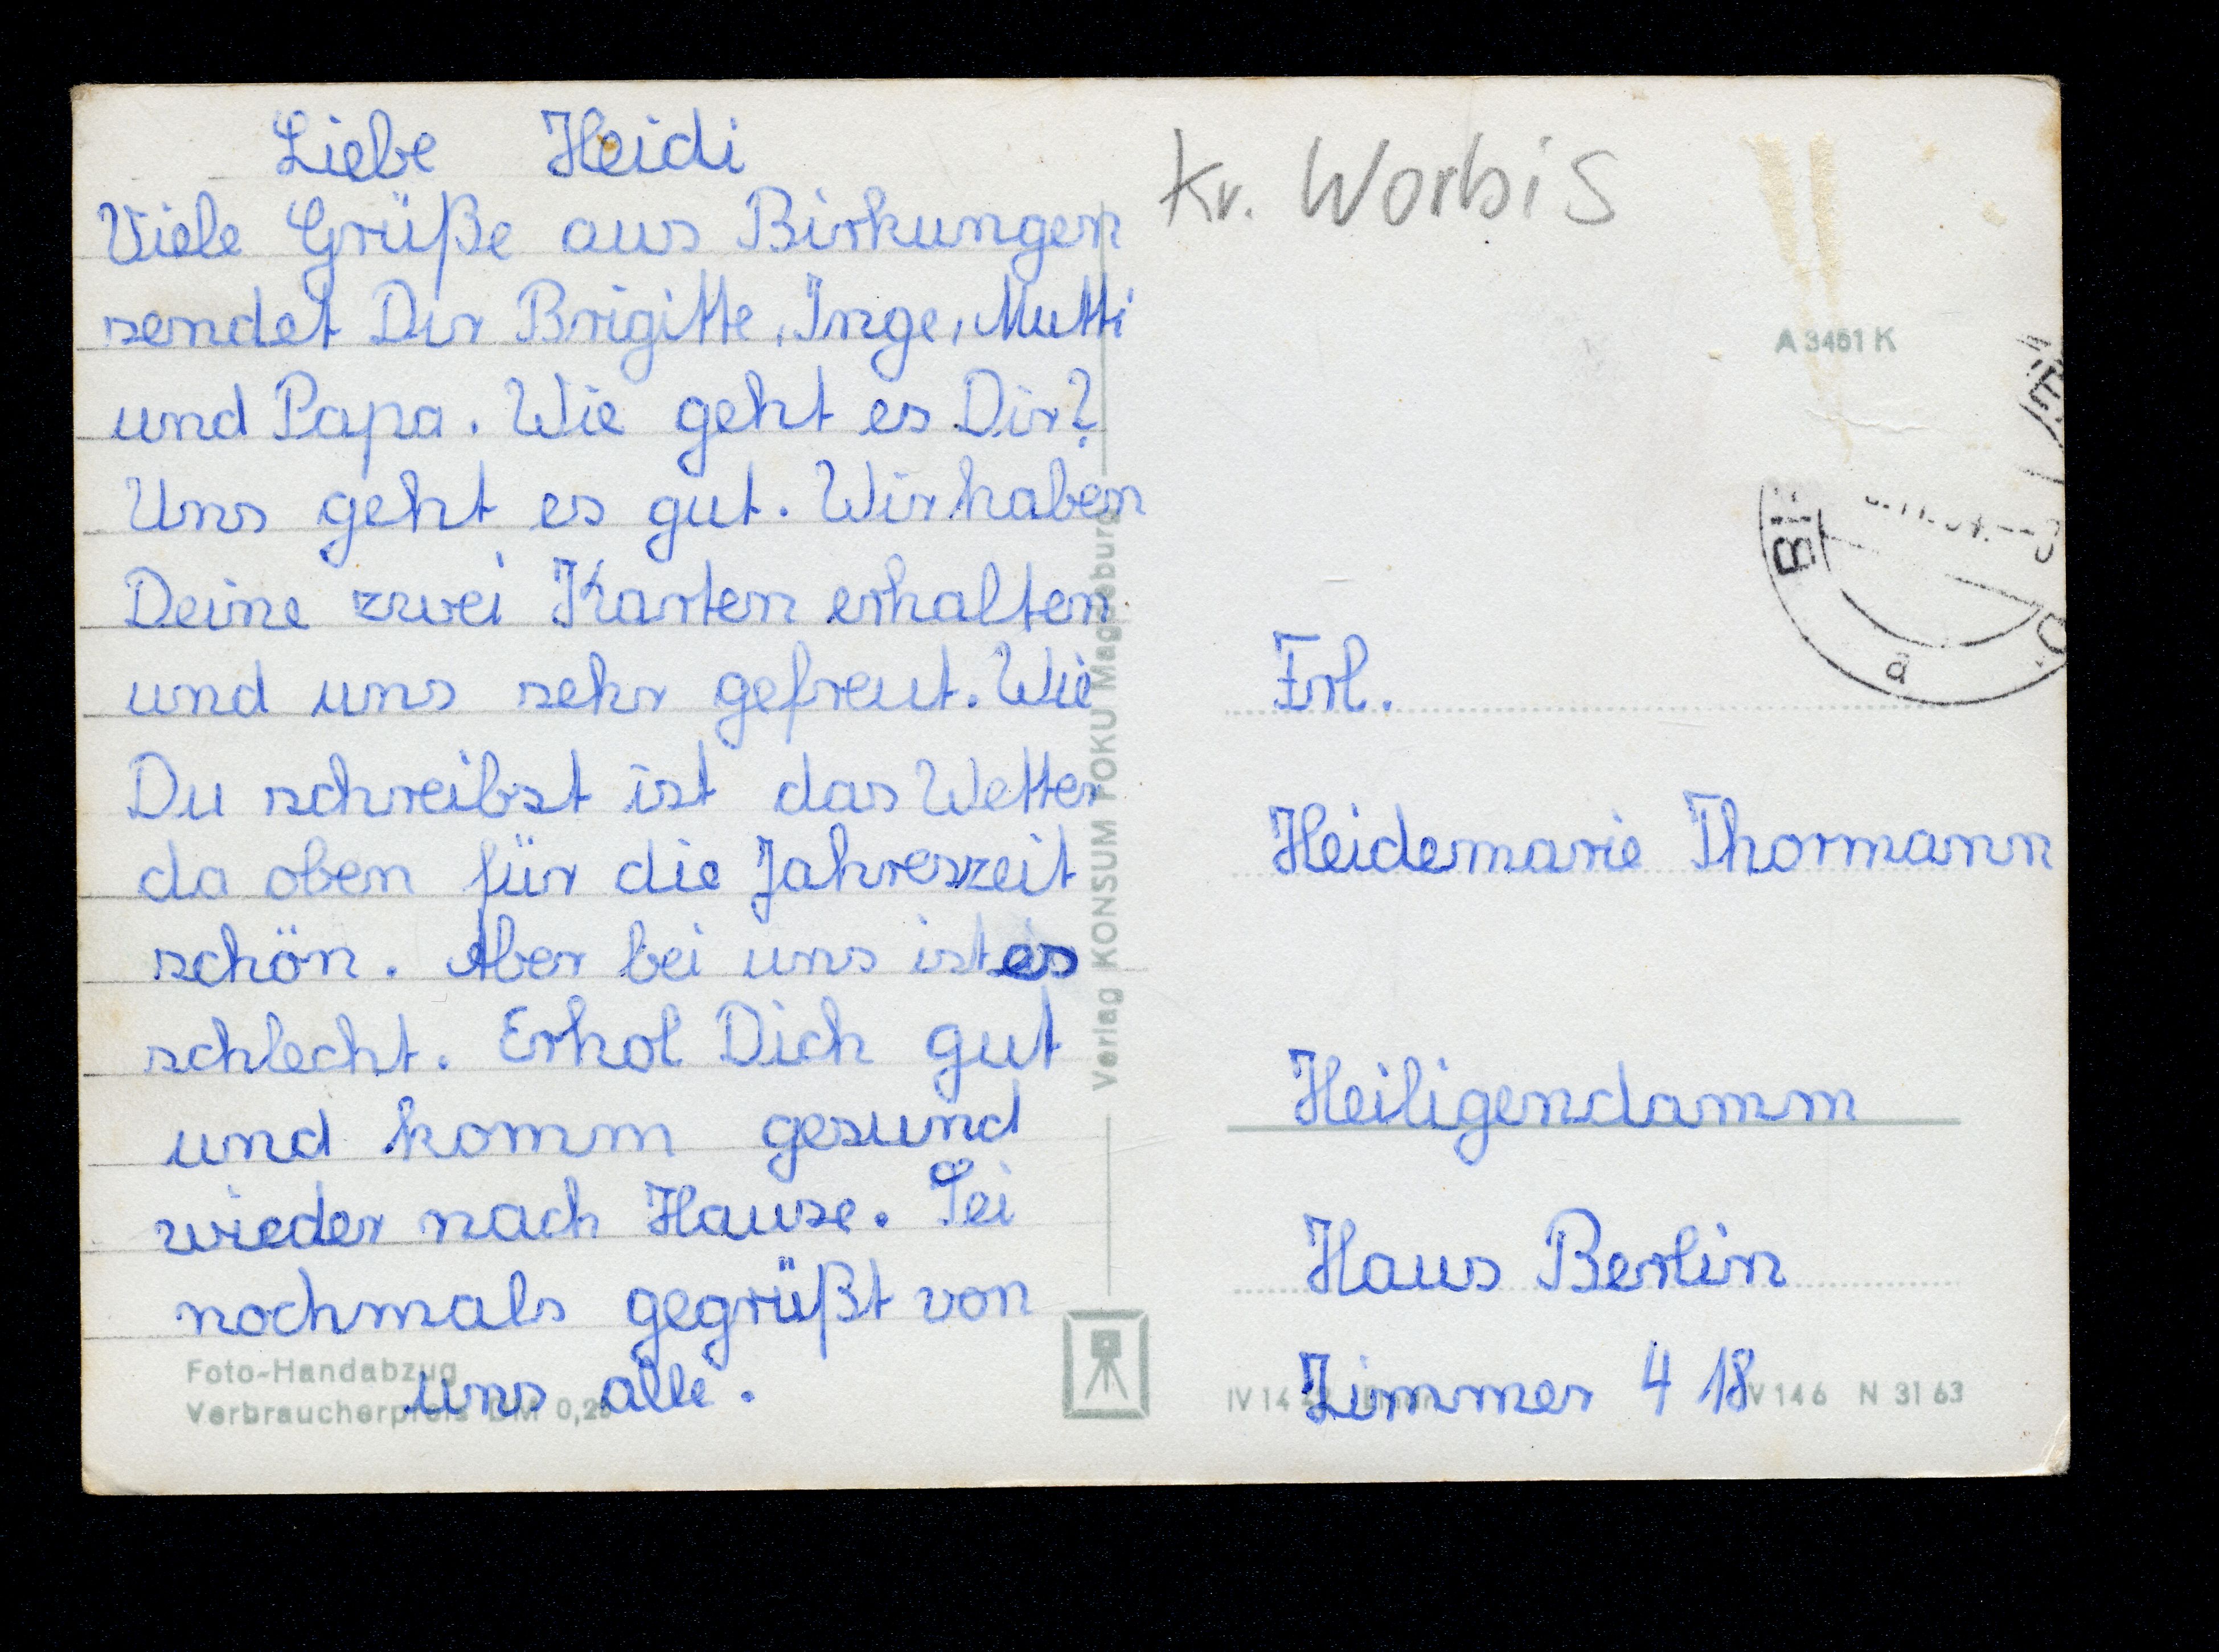 Liebe Heidi
Viele Grüße aus Birkungen
sendet Dir Brigitte, Inge, Mutti
und Papa. Wie geht es Dir?
Uns geht es gut. Wir haben
Deine zwei Karten erhalten
und uns sehr gefreut. Wie
Du schreibst ist das Wetter
da oben für die Jahreszeit
schön. Aber bei uns ist es
schlecht. Erhol Dich gut
und komm gesund
wieder nach Hause. Sei
nochmals gegrüßt von
uns alle.
Foto-Handabzug
Verbraucherpreis DM 0,20
Verlag KONSUM FOKU Magdeburg
Kr. Worbis
A 3451 K
a
Frl.
Heidemarie Thormann
Heiligendamm
Haus Berlin
Zimmer 4 18
IV 14
V 146 N 31 63